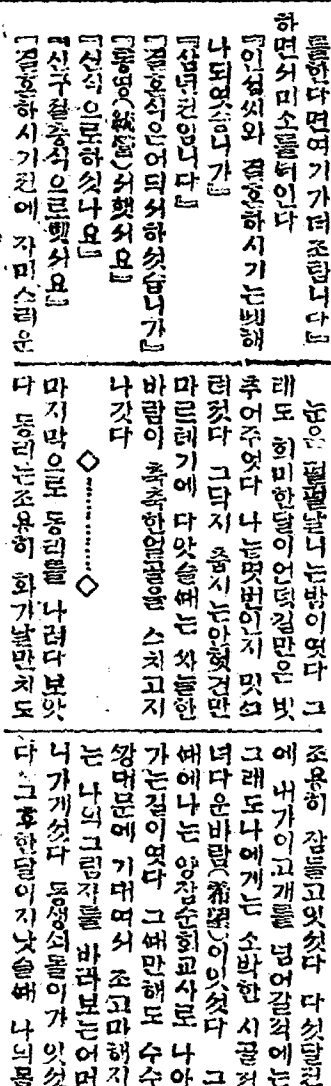 들한다면여기가더조탑니다』
하면서미소를씌인다
『인섭씨와 결혼하시기는멧해
나되엿슴니가』
『삼년전임니다』
『결혼식은어듸서하섯슴니가』
『통영(統營)서햇서요』
『신식으로하섯나요』
『신구절충식으로햇서요』
『결혼하시기전에 자미스러운
눈은 펄펄날니는밤이엿다 그
래도 희미한달이언덕길만은 빗
추어주엇다 나는멧번인지 밋그
러젓다 그닥지 춥시는안헛건만
마르테기에 다앗슬때는 싸늘한
바람이 축축한얼골을 스치고지
나갓다
◇………◇
마지막으로 동리를 나려다보앗
다 동리는조용히 화가날만치도
조용히 잠들고잇섯다 다섯달전
에 내가이고개를 넘어갈적에는
그래도나에게는 소박한 시골처
녀다운바람(希望)이잇섯다 그
때에나는 양잠순회교사로 나아
가는길이엿다 그때만해도 수수
깡대문에 기대여서 조고마해지
는 나의그림자를 바라보는어머
니가게섯다 동생쇠돌이가 잇섯
다 그후한달이지낫슬때 나의몸